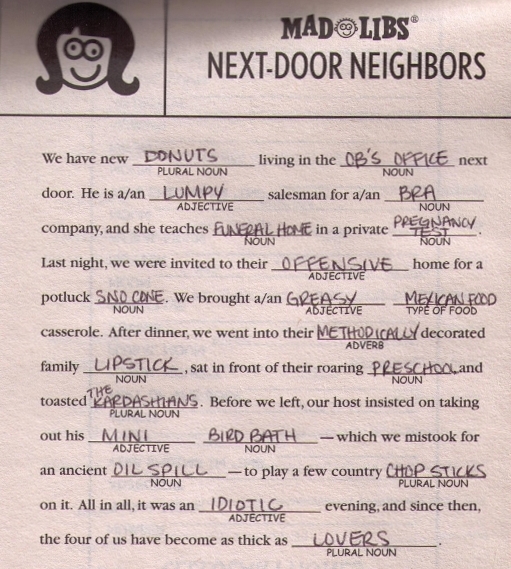 MAD LIBS®
NEXT-DOOR NEIGHBORS
We have new DONUTS living in the OB'S OFFICE next
PLURAL NOUN NOUN
door. He is a/an LUMPY salesman for a/an BRA
ADJECTIVE NOUN
company, and she teaches FUNERAL HOME in a private PREGNANCY TEST.
NOUN NOUN
Last night, we were invited to their OFFENSIVE home for a
ADJECTIVE
potluck SNO CONE. We brought a/an GREASY MEXICAN FOOD
NOUN ADJECTIVE TYPE OF FOOD
casserole. After dinner, we went into their METHODICALLY decorated
ADVERB
family LIPSTICK, sat in front of their roaring PRESCHOOL and
NOUN NOUN
toasted THE KARDASHIANS. Before we left, our host insisted on taking
PLURAL NOUN
out his MINI BIRD BATH—which we mistook for
ADJECTIVE NOUN
an ancient OIL SPILL—to play a few country CHOP STICKS
NOUN PLURAL NOUN
on it. All in all, it was an IDIOTIC evening, and since then,
ADJECTIVE
the four of us have become as thick as LOVERS.
PLURAL NOUN